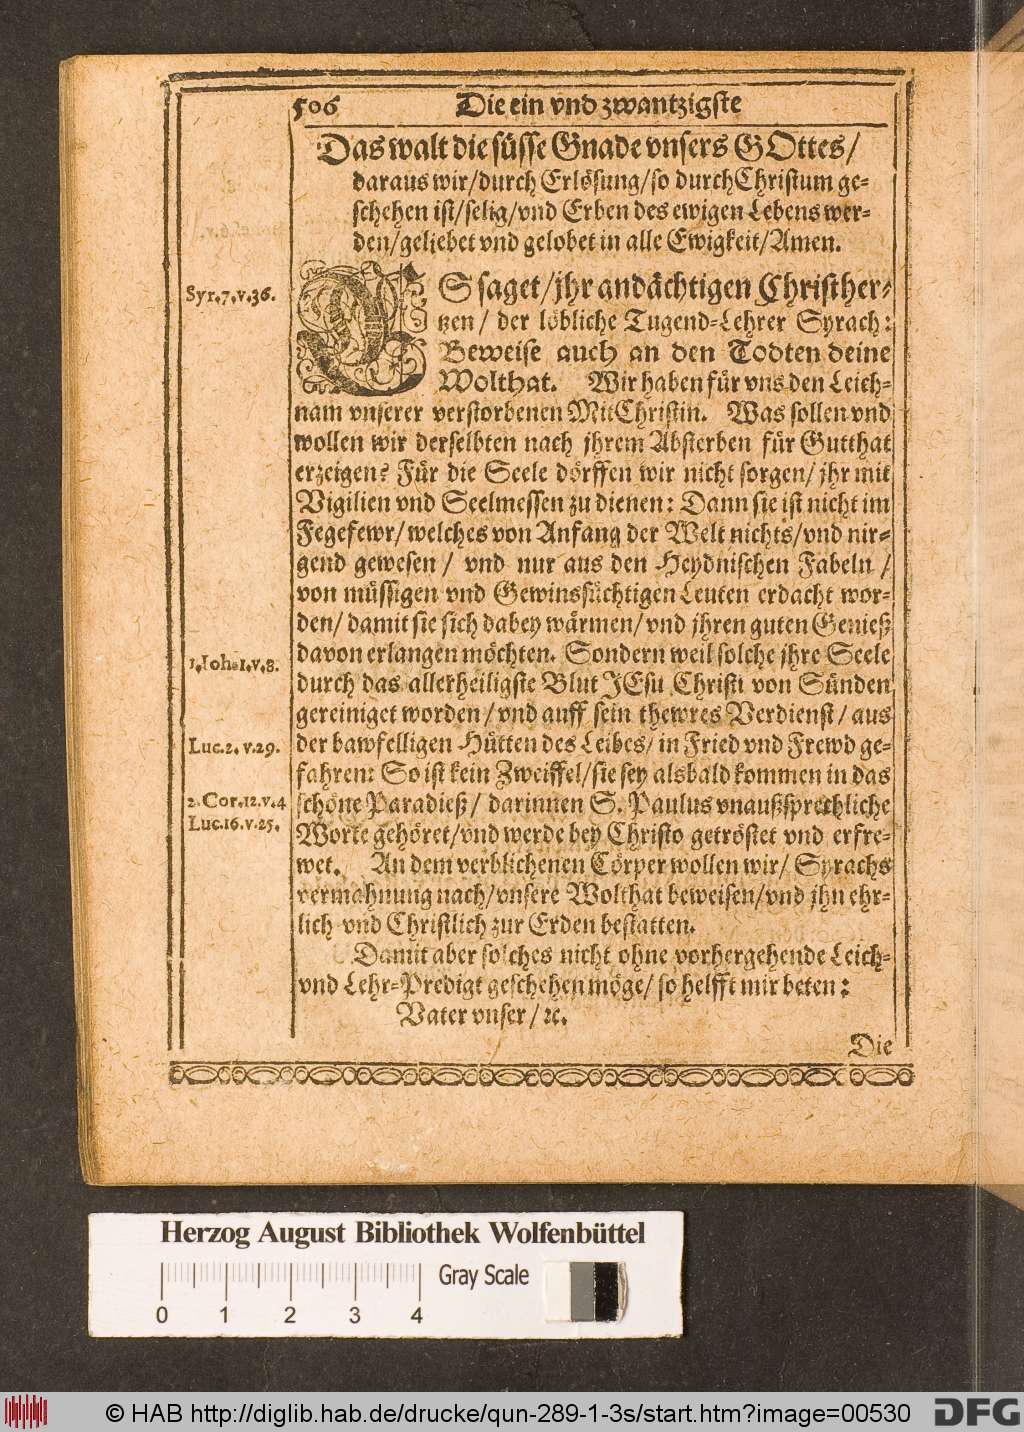 506 Die ein vnd zwantzigste
Das walt die süsse Gnade vnsers GOttes/
daraus wir/durch Erlösung/so durch Christum ge-
schehen ist/selig/vnd Erben des ewigen Lebens wer-
den/geliebet vnd gelobet in alle Ewigkeit/Amen.
Syr.7.v.36.
ES saget/jhr andächtigen Christher-
tzen/ der löbliche Tugend-Lehrer Syrach:
Beweise auch an den Todten deine
Wolthat. Wir haben für vns den Leich-
nam vnserer verstorbenen MitChristin. Was sollen vnd
wollen wir derselbten nach jhrem Absterben für Gutthat
erzeigen? Für die Seele dörffen wir nicht sorgen/ jhr mit
Vigilien vnd Seelmessen zu dienen: Dann sie ist nicht im
Fegefewr/welches von Anfang der Welt nichts/vnd nir-
gend gewesen / vnd nur aus den Heydnischen Fabeln /
von müssigen vnd Gewinssüchtigen Leuten erdacht wor-
den/ damit sie sich dabey wärmen/vnd jhren guten Genieß
1.Joh.1.v.8.
davon erlangen möchten. Sondern weil solche jhre Seele
durch das allerheiligste Blut JEsu Christi von Sünden
gereiniget worden/vnd auff sein thewres Verdienst/ aus
Luc.2.v.29.
der bawfelligen Hütten des Leibes/ in Fried vnd Frewd ge-
fahren: So ist kein Zweiffel/sie sey alsbald kommen in das
2.Cor.12.v.4
schöne Paradieß/ darinnen S. Paulus vnaußsprechliche
Luc.16.v.25.
Worte gehöret/vnd werde bey Christo getröstet vnd erfre-
wet. An dem verblichenen Cörper wollen wir/ Syrachs
vermahnung nach/vnsere Wolthat beweisen/vnd jhn ehr-
lich vnd Christlich zur Erden bestatten.
Damit aber solches nicht ohne vorhergehende Leich-
vnd Lehr-Predigt geschehen möge/ so helfft mir beten:
Vater vnser/ ꝛc.
Die
Herzog August Bibliothek Wolfenbüttel
Gray Scale
0 1 2 3 4
© HAB http://diglib.hab.de/drucke/qun-289-1-3s/start.htm?image=00530 DFG